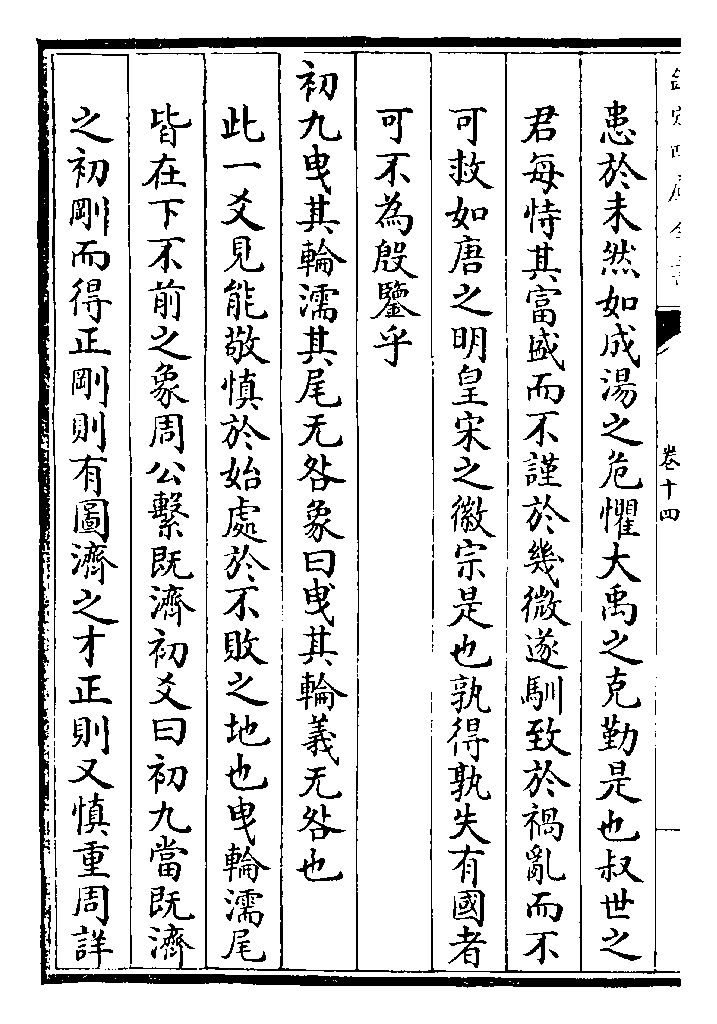 欽定四庫全書
卷十四
患於未然如成湯之危懼大禹之克勤是也叔世之
君每恃其富盛而不謹於幾微遂馴致於禍亂而不
可救如唐之明皇宋之徽宗是也孰得孰失有國者
可不為殷鑒乎
初九曳其輪濡其尾无咎象曰曳其輪義无咎也
此一爻見能敬慎於始處於不敗之地也曳輪濡尾
皆在下不前之象周公繫既濟初爻曰初九當既濟
之初剛而得正剛則有圖濟之才正則又慎重周詳